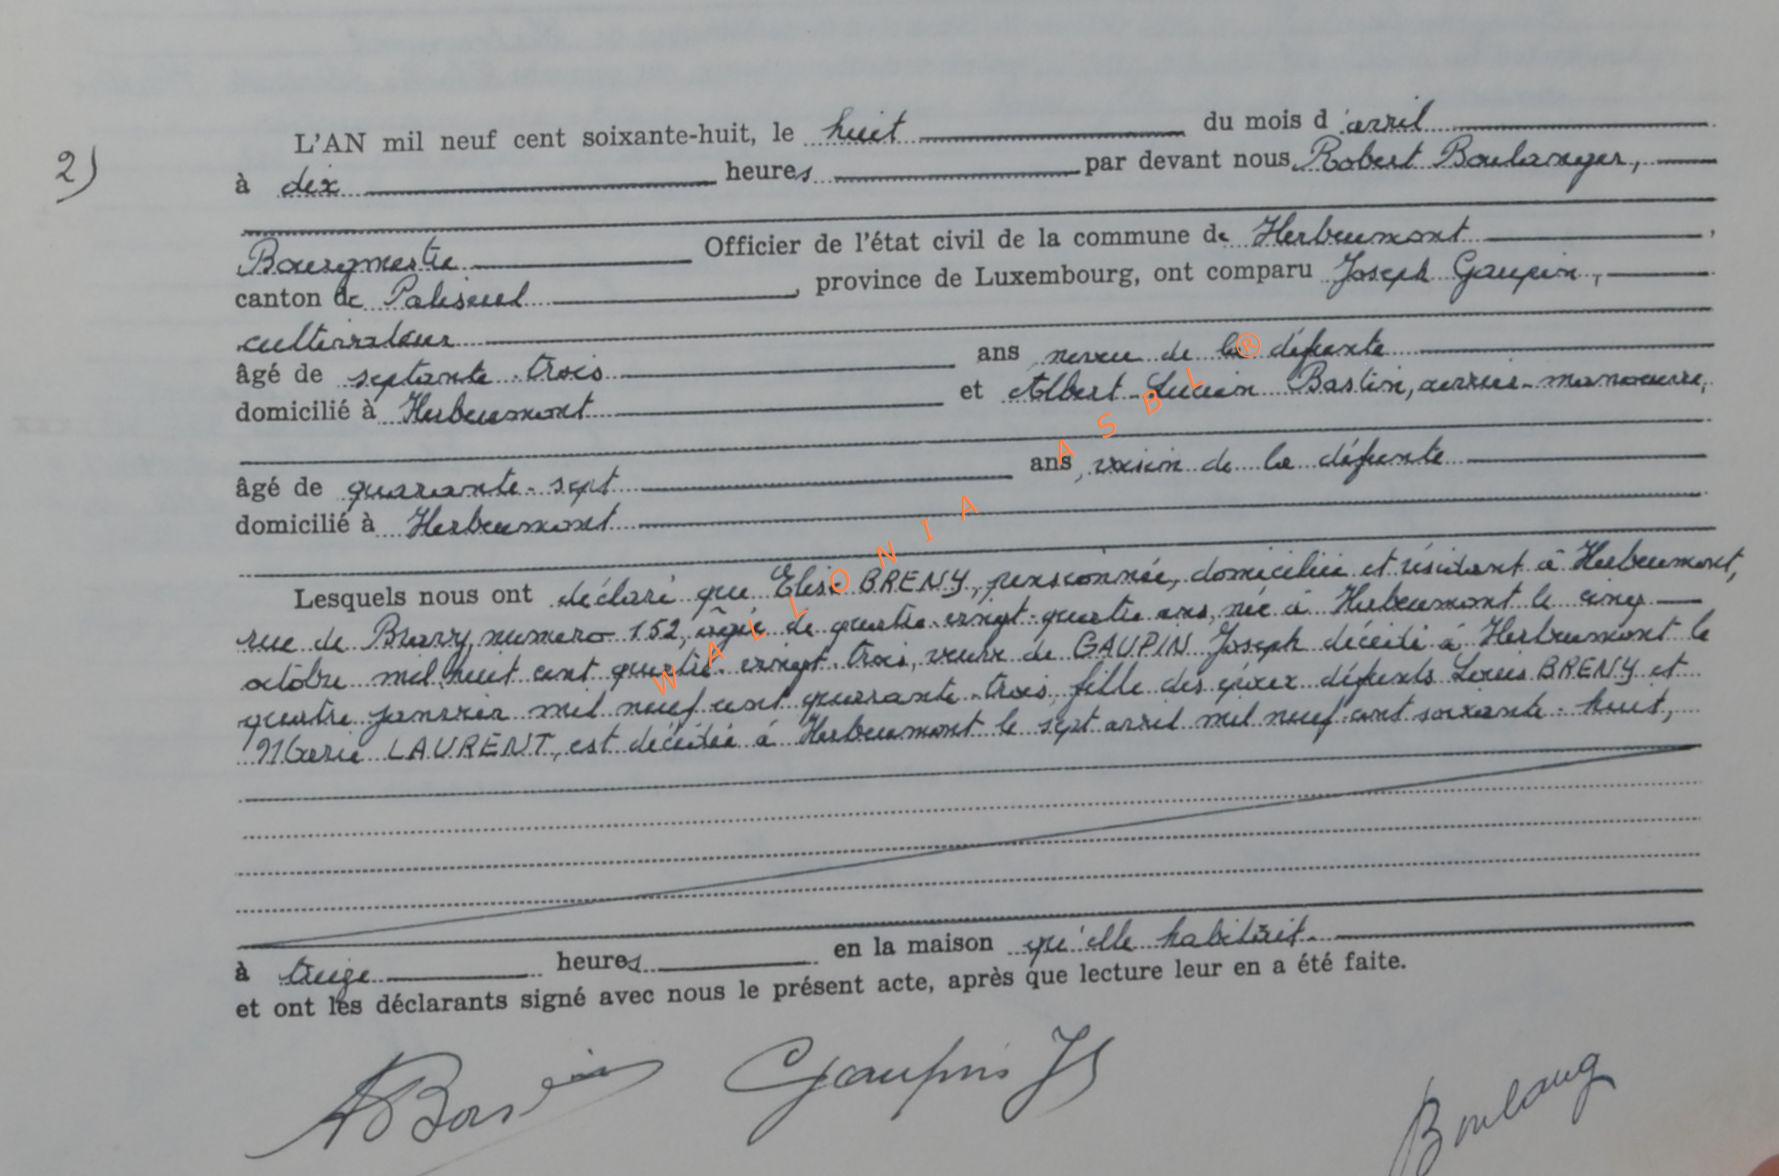 2)
L'AN mil neuf cent soixante-huit, le huit du mois d'avril
à dix heures par devant nous Robert Boulanger,
Bourgmestre Officier de l'état civil de la commune de Herbeumont,
canton de Paliseul, province de Luxembourg, ont comparu Joseph Gaupin,
cultivateur
âgé de septante-trois ans neveu de la défunte
domicilié à Herbeumont et Albert-Lucien Baslin, ouvrier-manoeuvre,
âgé de quarante-sept ans, voisin de la défunte
domicilié à Herbeumont
Lesquels nous ont déclaré que Elise BRENY, pensionnée, domiciliée et résidant à Herbeumont,
rue de Bravy, numéro 152, âgée de quatre-vingt-quatre ans, née à Herbeumont le cinq
octobre mil huit cent quatre-vingt-trois, veuve de GAUPIN Joseph décédé à Herbeumont le
quatre janvier mil neuf cent quarante-trois, fille des époux défunts Louis BRENY et
Marie LAURENT, est décédée à Herbeumont le sept avril mil neuf cent soixante-huit,
à treize heures en la maison qu'elle habitait.
et ont les déclarants signé avec nous le présent acte, après que lecture leur en a été faite.
Gaupin Js
Boulang
WALLONIA ASBL ®